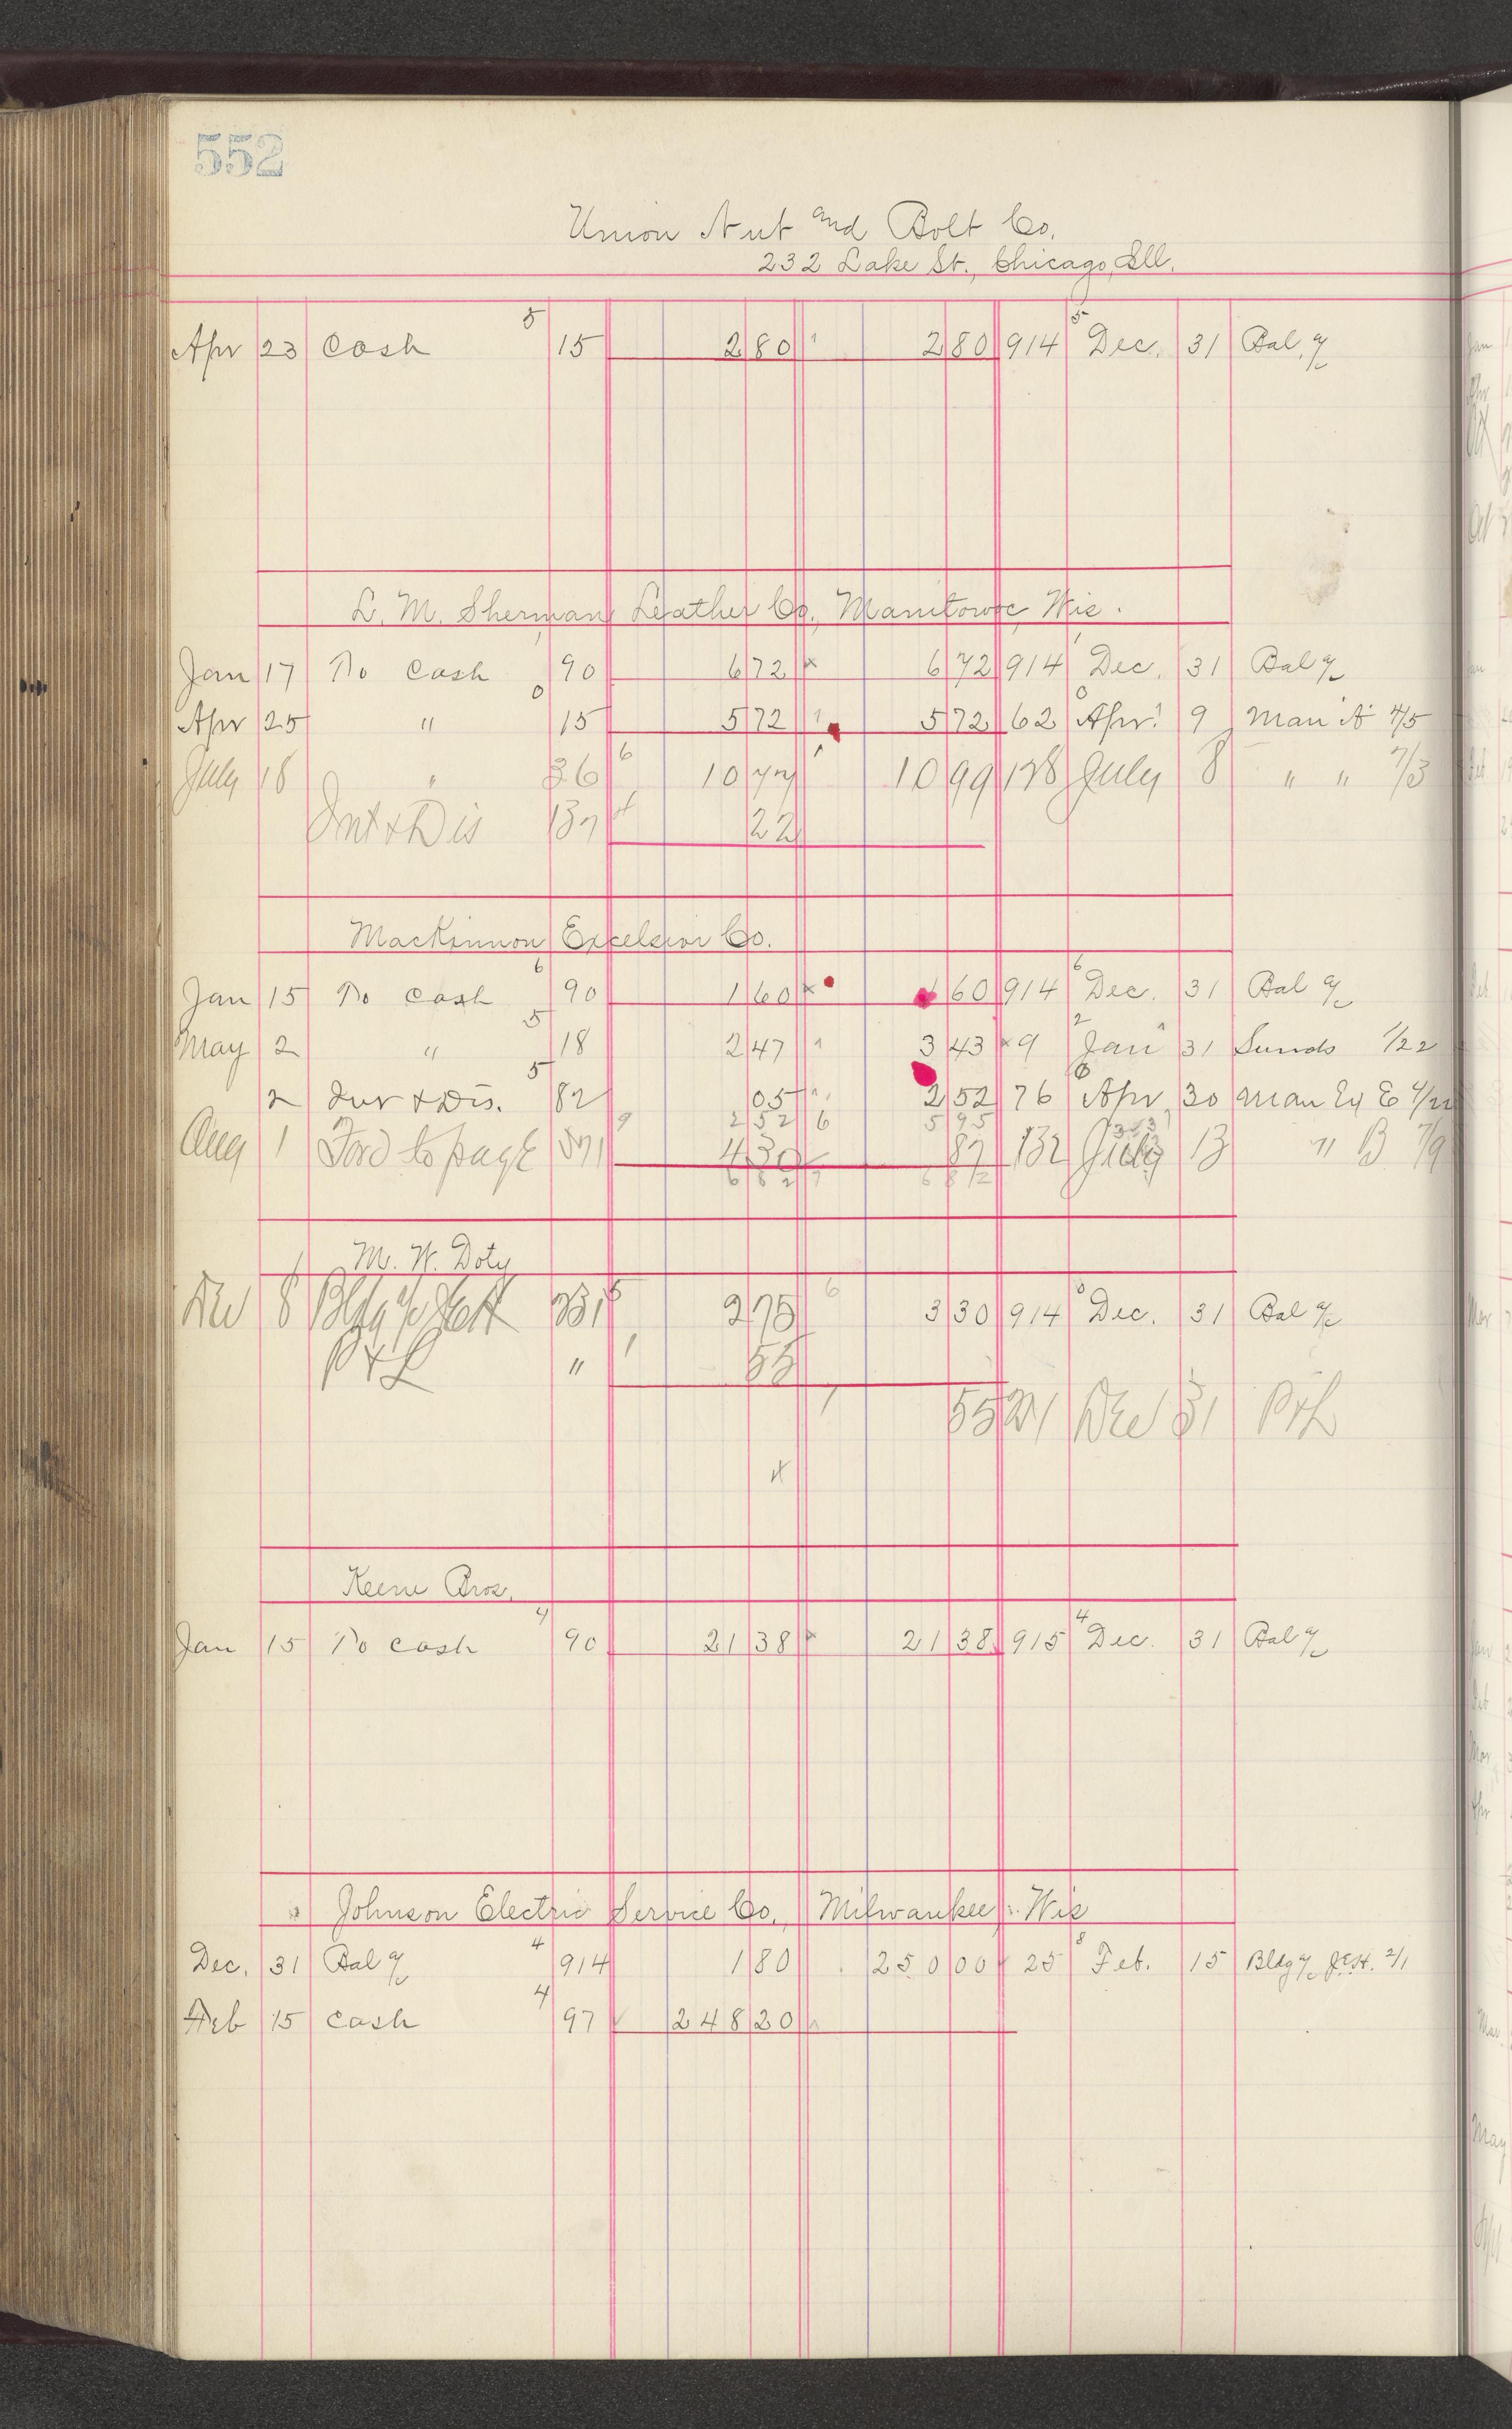 552
Union Nut and Bolt Co.
232 Lake St., Chicago, Ill.
Apr 23 Cash 5 15 2 80 2 80 914 5 Dec. 31 Bal. a/c
L. M. Sherman Leather Co. Manitowoc Wis.
Jan 17 To Cash 90 6 72 x 6 72 914 Dec. 31 Bal a/c
Apr 25 " 0 15 5 72 5 72 62 0 Apr. 9 Man A 4/5
July 18 " 36 6 10 77 10 99 128 July 8 " " 7/3
Int & Dis 137 22
MacKinnon Excelsior Co.
Jan 15 To Cash 6 90 1 60 x 1 60 914 6 Dec. 31 Bal a/c
May 2 " 5 18 2 47 3 43 x 9 2 Jan 31 Sunds 1/22
2 Int & Dis. 5 82 05 2 52 76 6 Apr 30 Man Ex E 4/22
2 52 6 5 95
Aug 1 Ford to page 571 9 4 30 87 132 July 13 " B 7/9
6 82 6 82
M. W. Doty
Dec 8 Bldg a/c 231 5 2 75 6 3 30 914 0 Dec. 31 Bal a/c
P & L " 1 55
55 Dec 31 P & L
x
Keene Bros.
Jan 15 To Cash 4 90 21 38 x 21 38 915 4 Dec. 31 Bal a/c
Johnson Electric Service Co. Milwaukee Wis
Dec. 31 Bal a/c 4 914 1 80 250 00 25 8 Feb. 15 Bldg a/c J.E.H. 2/1
Feb 15 Cash 4 97 248 20